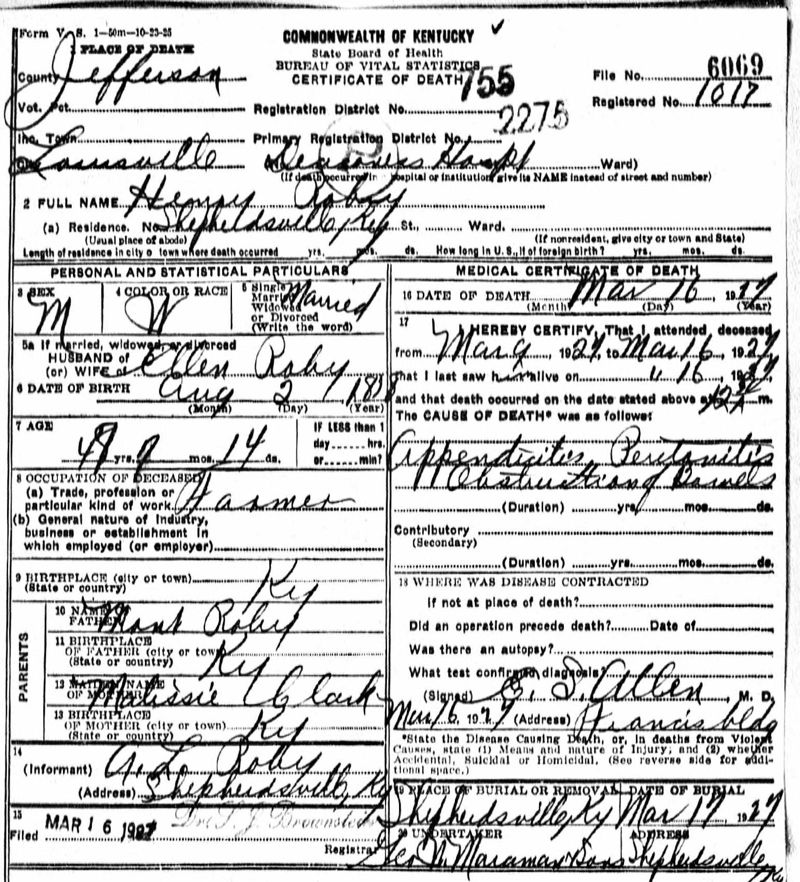 Form V. S. 1—50m—10-23-25
COMMONWEALTH OF KENTUCKY
State Board of Health
BUREAU OF VITAL STATISTICS
CERTIFICATE OF DEATH
755
1 PLACE OF DEATH
County Jefferson
File No. 6069
Registered No. 1017
Vot. Pct.
Registration District No.
2275
Inc. Town
Primary Registration District No.
Louisville
Deaconess Hospt Ward)
(If death occurred in hospital or institution, give its NAME instead of street and number)
2 FULL NAME Henry Roby
(a) Residence. No. Shepherdsville, Ky St., Ward.
(Usual place of abode) (If nonresident, give city or town and State)
Length of residence in city o town where death occurred yrs. mos. ds. How long in U. S., if of foreign birth? yrs. mos. ds.
PERSONAL AND STATISTICAL PARTICULARS
3 SEX M
4 COLOR OR RACE W
5 Single Married Widowed or Divorced (Write the word) Married
5a If married, widowed, or divorced
HUSBAND of
(or) WIFE of Ellen Roby
6 DATE OF BIRTH Aug 2
(Month) (Day) (Year)
7 AGE
yrs. mos. 14 ds.
IF LESS than 1
day hrs.
or min?
8 OCCUPATION OF DECEASED
(a) Trade, profession or
particular kind of work Farmer
(b) General nature of Industry,
business or establishment in
which employed (or employer)
9 BIRTHPLACE (city or town)
(State or country) Ky
PARENTS
10 NAME OF
FATHER Mont Roby
11 BIRTHPLACE
OF FATHER (city or town)
(State or country) Ky
12 MAIDEN NAME
OF MOTHER Malissie Clark
13 BIRTHPLACE
OF MOTHER (city or town)
(State or country) Ky
14
(Informant) A. L. Roby
(Address) Shepherdsville, Ky
15
Filed MAR 16 1927 Dr. T. J. Brownstein
Registrar
MEDICAL CERTIFICATE OF DEATH
16 DATE OF DEATH Mar 16, 1927
(Month) (Day) (Year)
17
I HEREBY CERTIFY, That I attended, deceased
from Mar 9, 1927, to Mar 16, 1927
that I last saw him alive on " 16, 1927
and that death occurred on the date stated above at m.
The CAUSE OF DEATH* was as follows:
Appendicitis, Peritonitis
Obstruction of Bowels
(Duration) yrs. mos. ds.
Contributory
(Secondary)
(Duration) yrs. mos. ds.
18 WHERE WAS DISEASE CONTRACTED
If not at place of death?
Did an operation precede death? Date of
Was there an autopsy?
What test confirmed diagnosis?
(Signed) Allen, M. D.
Mar 16, 1927 (Address) Francis bldg
*State the Disease Causing Death, or, in deaths from Violent
Causes, state (1) Means and nature of Injury; and (2) whether
Accidental, Suicidal or Homicidal. (See reverse side for addi-
tional space.)
19 PLACE OF BURIAL OR REMOVAL DATE OF BURIAL
Shepherdsville, Ky Mar 17 1927
20 UNDERTAKER ADDRESS
Geo W Maraman & Sons Shepherdsville
Ky